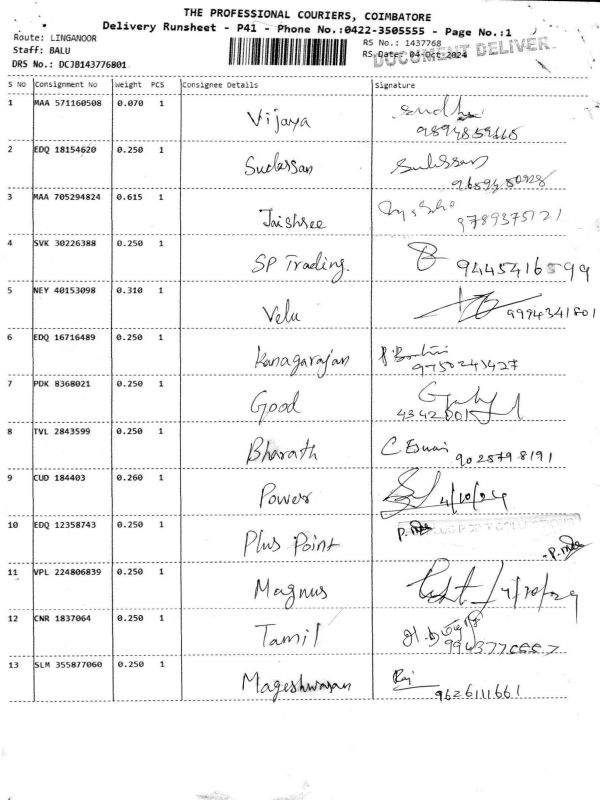 THE PROFESSIONAL COURIERS, COIMBATORE
Delivery Runsheet - P41 - Phone No.:0422-3505555 - Page No.:1
Route: LINGANOOR
RS No.: 1437768
Staff: BALU
RS Date: 04-Oct-2024
DOCUMENT DELIVER
DRS No.: DCJB143776801
S NO Consignment No Weight PCS Consignee Details Signature
1 MAA 571160508 0.070 1 Vijaya
9894859665
2 EDQ 18154620 0.250 1 Sudarssan
3 MAA 705294824 0.615 1 Jaishree
9789375121
4 SVK 30226388 0.250 1 SP Trading. 9445416599
5 NEY 40153098 0.310 1 Velu 9994341801
6 EDQ 16716489 0.250 1 Kanagarajan
9750243427
7 PDK 8368021 0.250 1 Good
4342801
8 TVL 2843599 0.250 1 Bharath C Eswari
9025798191
9 CUD 184403 0.260 1 Power 4/10/24
10 EDQ 12358743 0.250 1 Plus Point
11 VPL 224806839 0.250 1 Magnus 4/10/24
12 CNR 1837064 0.250 1 Tamil
13 SLM 355877060 0.250 1 Mageshwaran Raj
9626111661